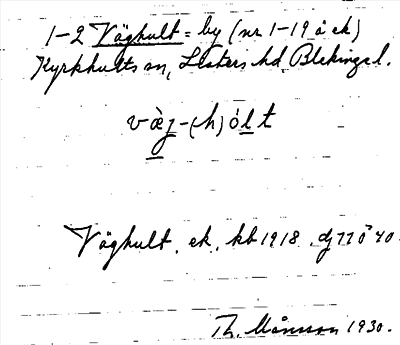 1-2 Vöghult = by (nr 1-19 å ek)
Kyrkhults sn, Listers hd, Blekinge l.
væ̀ʒ-(h)ólt
Vöghult, ek, kb 1918
Th. Månsson 1930.